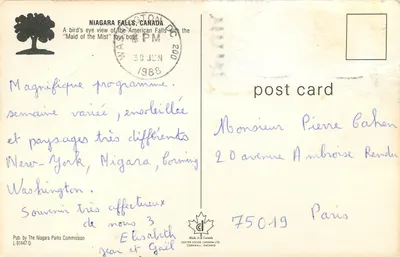 NIAGARA FALLS, CANADA
A bird's eye view of the American Falls and the
"Maid of the Mist" tour boat.
WASHINGTON DC 200
PM
30 JUN
1986
post card
Magnifique programme.
semaine variée, ensoleillée
et paysages très différents
New-York, Niagara, Corning
Washington.
Souvenir très affectueux
de nous 3
Elisabeth
Jean et Gaël
Monsieur Pierre Cahen
20 avenue Ambroise Rendu
75019 Paris
Pub. by The Niagara Parks Commission
Made in Canada